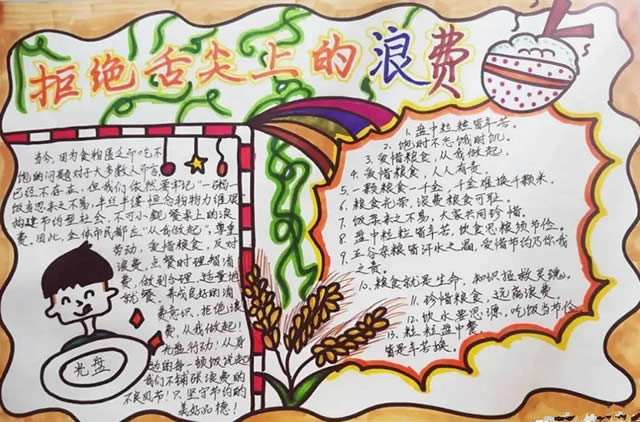 拒绝舌尖上的浪费
当今,因为食物匮乏而吃不
饱的问题对于大多数人而言
已经不存在,但我们依然要牢记"一粥一
饭当思来之不易,半丝半缕恒念物力维艰
构建节约型社会,不可小觑餐桌上的浪
费,因此,全体市民都应"从我做起",尊重
劳动,爱惜粮食,反对
浪费,点餐时理智消
费,做到合理,适量地
就餐,养成良好的消
费意识,拒绝浪
费,从我做起!
光盘行动!从身
边的每一顿饭说起
我们不铺张浪费的
不良风节!只坚守节约的
美好品德!
光盘
1.盘中粒粒皆辛苦。
2.饱时不忘饿时饥。
3.爱惜粮食,从我做起。
4.爱惜粮食,人人有责。
5.一颗粮食一千金,千金难换千颗米。
6.粮食光荣,浪费粮食可耻。
7.饭菜来之不易,大家共同珍惜。
8.盘中粒粒皆辛苦,饮食思粮须节俭。
9.五谷杂粮皆汗水之晶,爱惜节约乃你我
之责。
10.粮食就是生命,知识拯救灵魂。
11.珍惜粮食,远离浪费。
12.饮水要思源,吃饭当节俭
13.粒粒盘中餐,
皆是辛苦换。